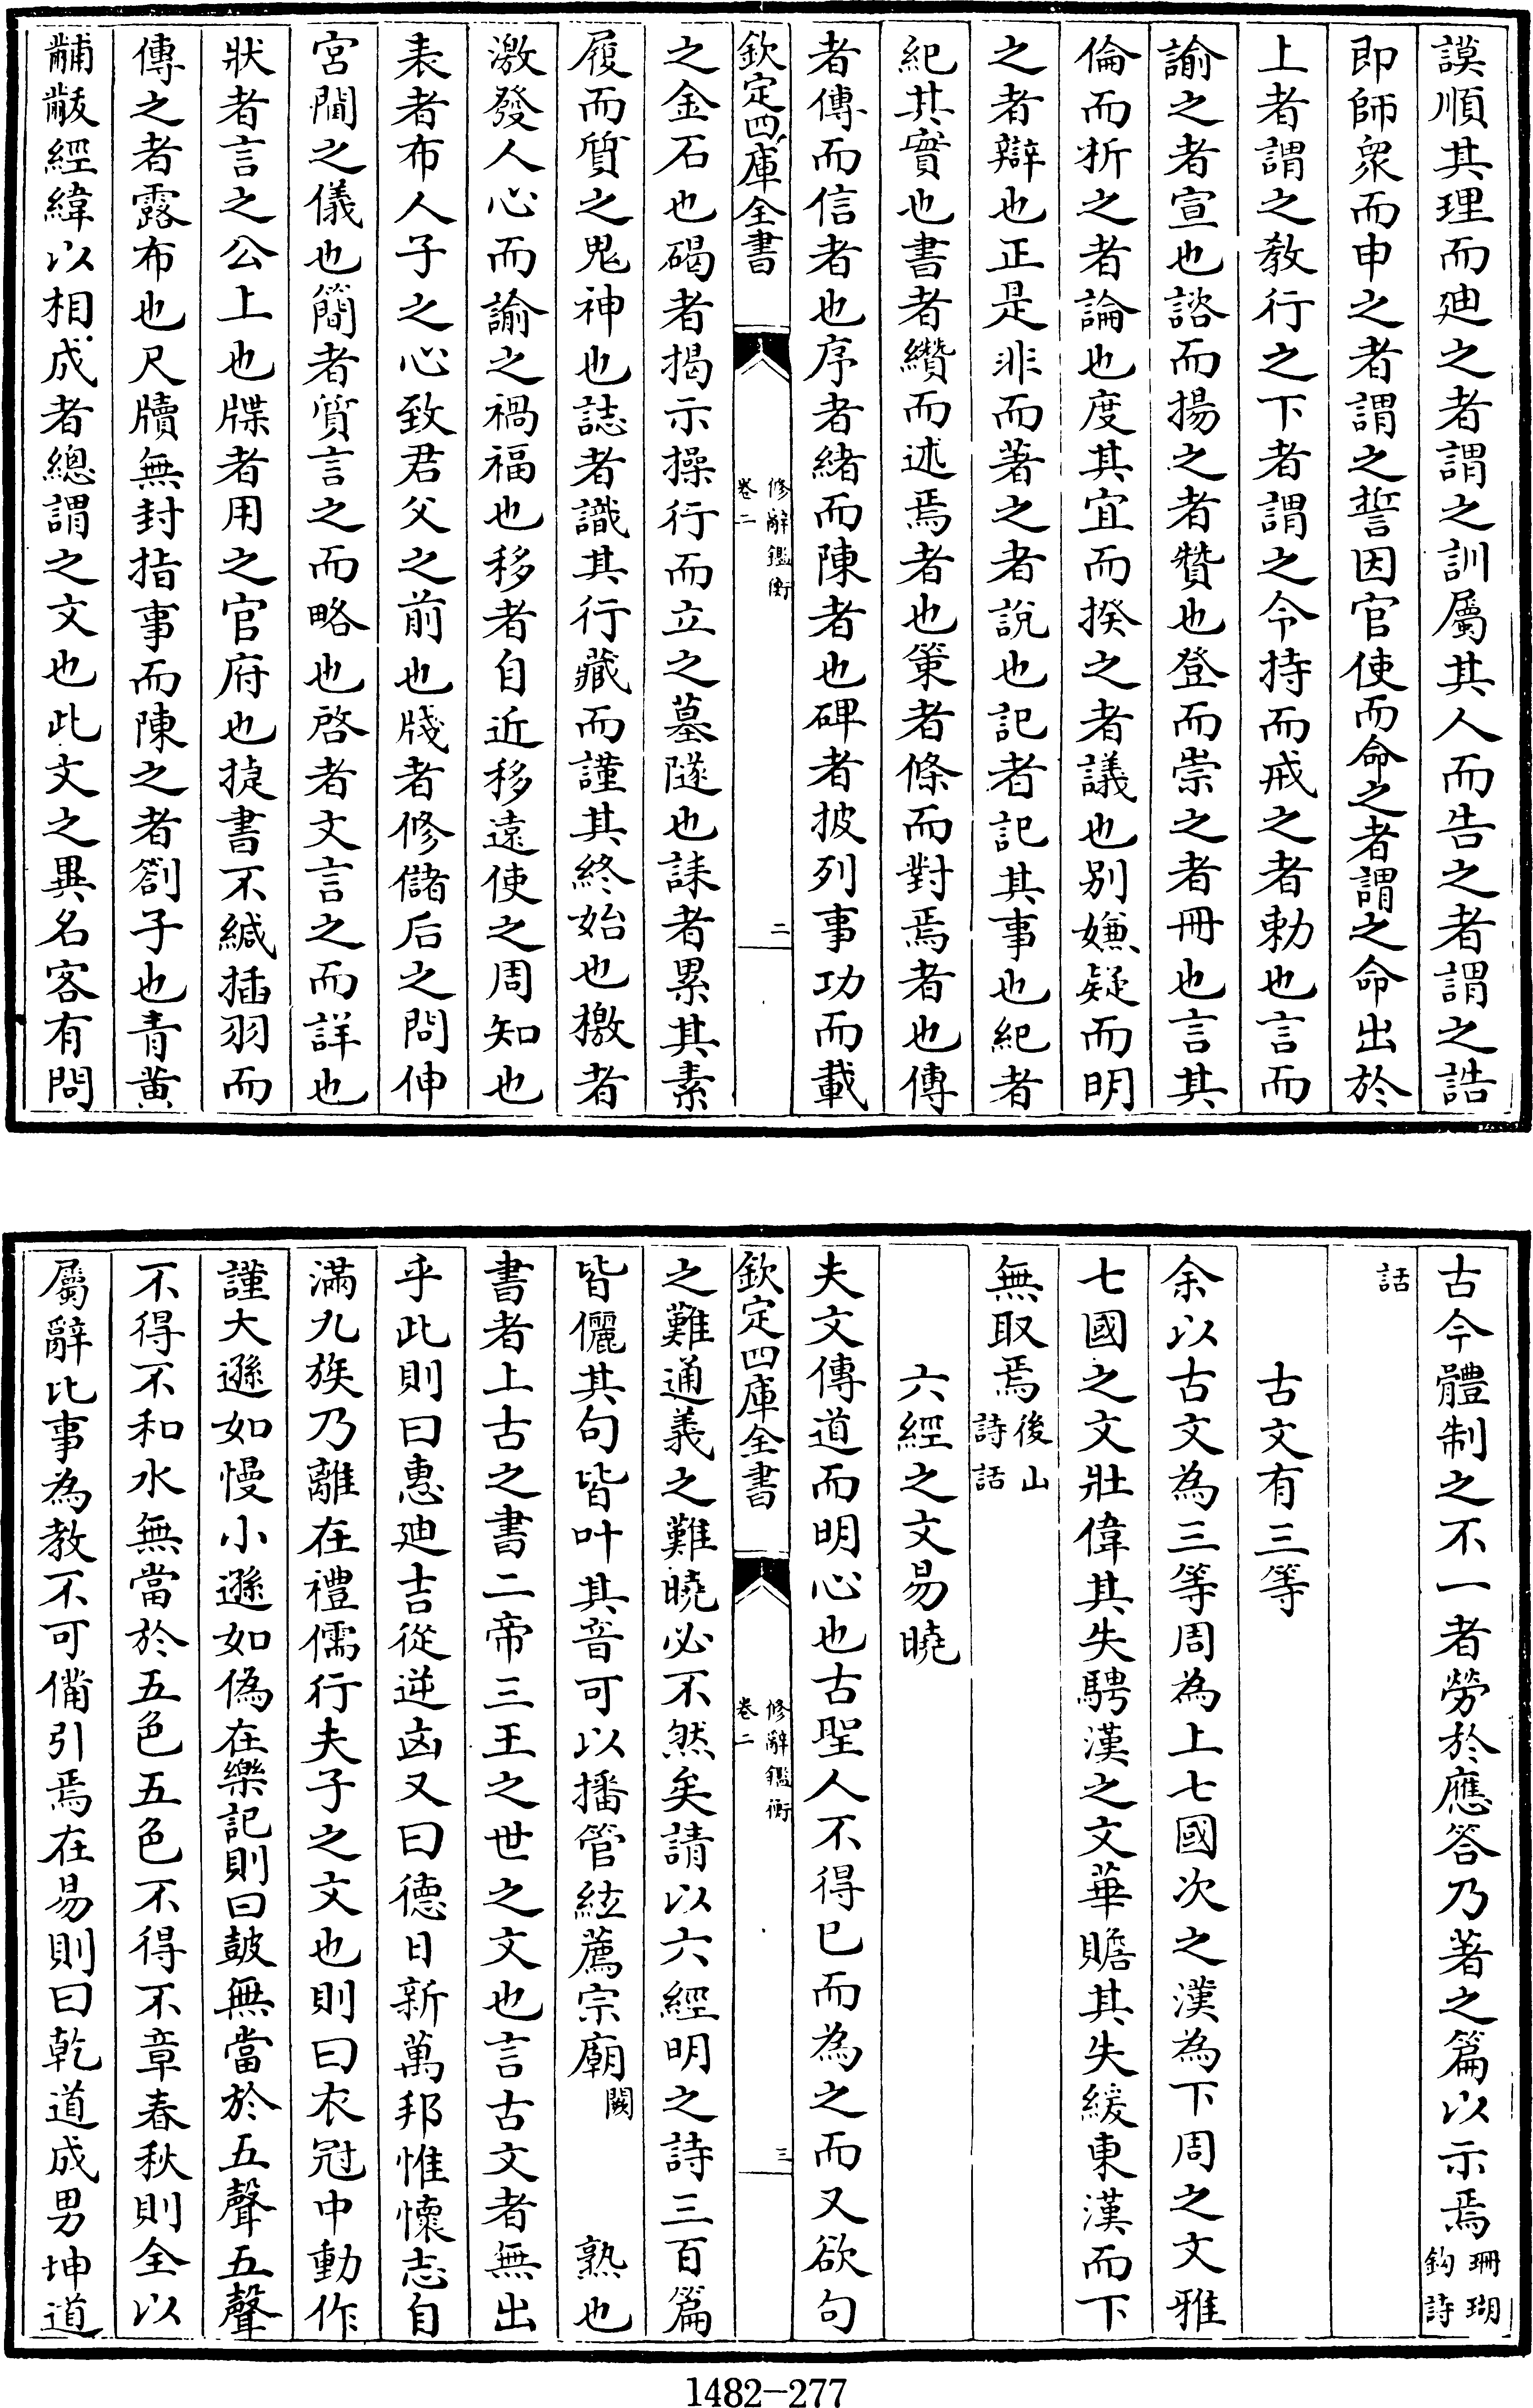 謨順其理而廸之者謂之訓屬其人而告之者謂之誥
即師衆而申之者謂之誓因官使而命之者謂之命出於
上者謂之教行之下者謂之令持而戒之者勅也言而
諭之者宣也諮而揚之者贊也登而崇之者冊也言其
倫而析之者論也度其宜而揆之者議也别嫌疑而明
之者辯也正是非而著之者說也記者記其事也紀者
紀其實也書者纘而述焉者也䇿者條而對焉者也傳
者傳而信者也序者緒而陳者也碑者披列事功而載
欽定四庫全書
修辭鑑衡
卷二
二
之金石也碣者揭示操行而立之墓隧也誄者累其素
履而質之鬼神也誌者識其行藏而謹其終始也檄者
激發人心而諭之禍福也移者自近移遠使之周知也
表者布人子之心致君父之前也牋者修儲后之問伸
宮閫之儀也簡者質言之而略也啓者文言之而詳也
狀者言之公上也牒者用之官府也捷書不緘插羽而
傳之者露布也尺牘無封指事而陳之者劄子也青黃
黼黻經緯以相成者總謂之文也此文之異名客有問
古今體制之不一者勞於應答乃著之篇以示焉珊瑚
鈎詩
話
古文有三等
余以古文為三等周為上七國次之漢為下周之文雅
七國之文壯偉其失騁漢之文華贍其失緩東漢而下
無取焉後山
詩話
六經之文易曉
夫文傳道而明心也古聖人不得已而為之而又欲句
欽定四庫全書
修辭鑑衡
卷二
三
之難通義之難曉必不然矣請以六經明之詩三百篇
皆儷其句皆叶其音可以播管絃薦宗廟闕 熟也
書者上古之書二帝三王之世之文也言古文者無出
乎此則曰惠廸吉從逆凶又曰德日新萬邦惟懷志自
滿九族乃離在禮儒行夫子之文也則曰衣冠中動作
謹大遜如慢小遜如偽在樂記則曰鼓無當於五聲五聲
不得不和水無當於五色五色不得不章春秋則全以
屬辭比事為教不可備引焉在易則曰乾道成男坤道
1482-277